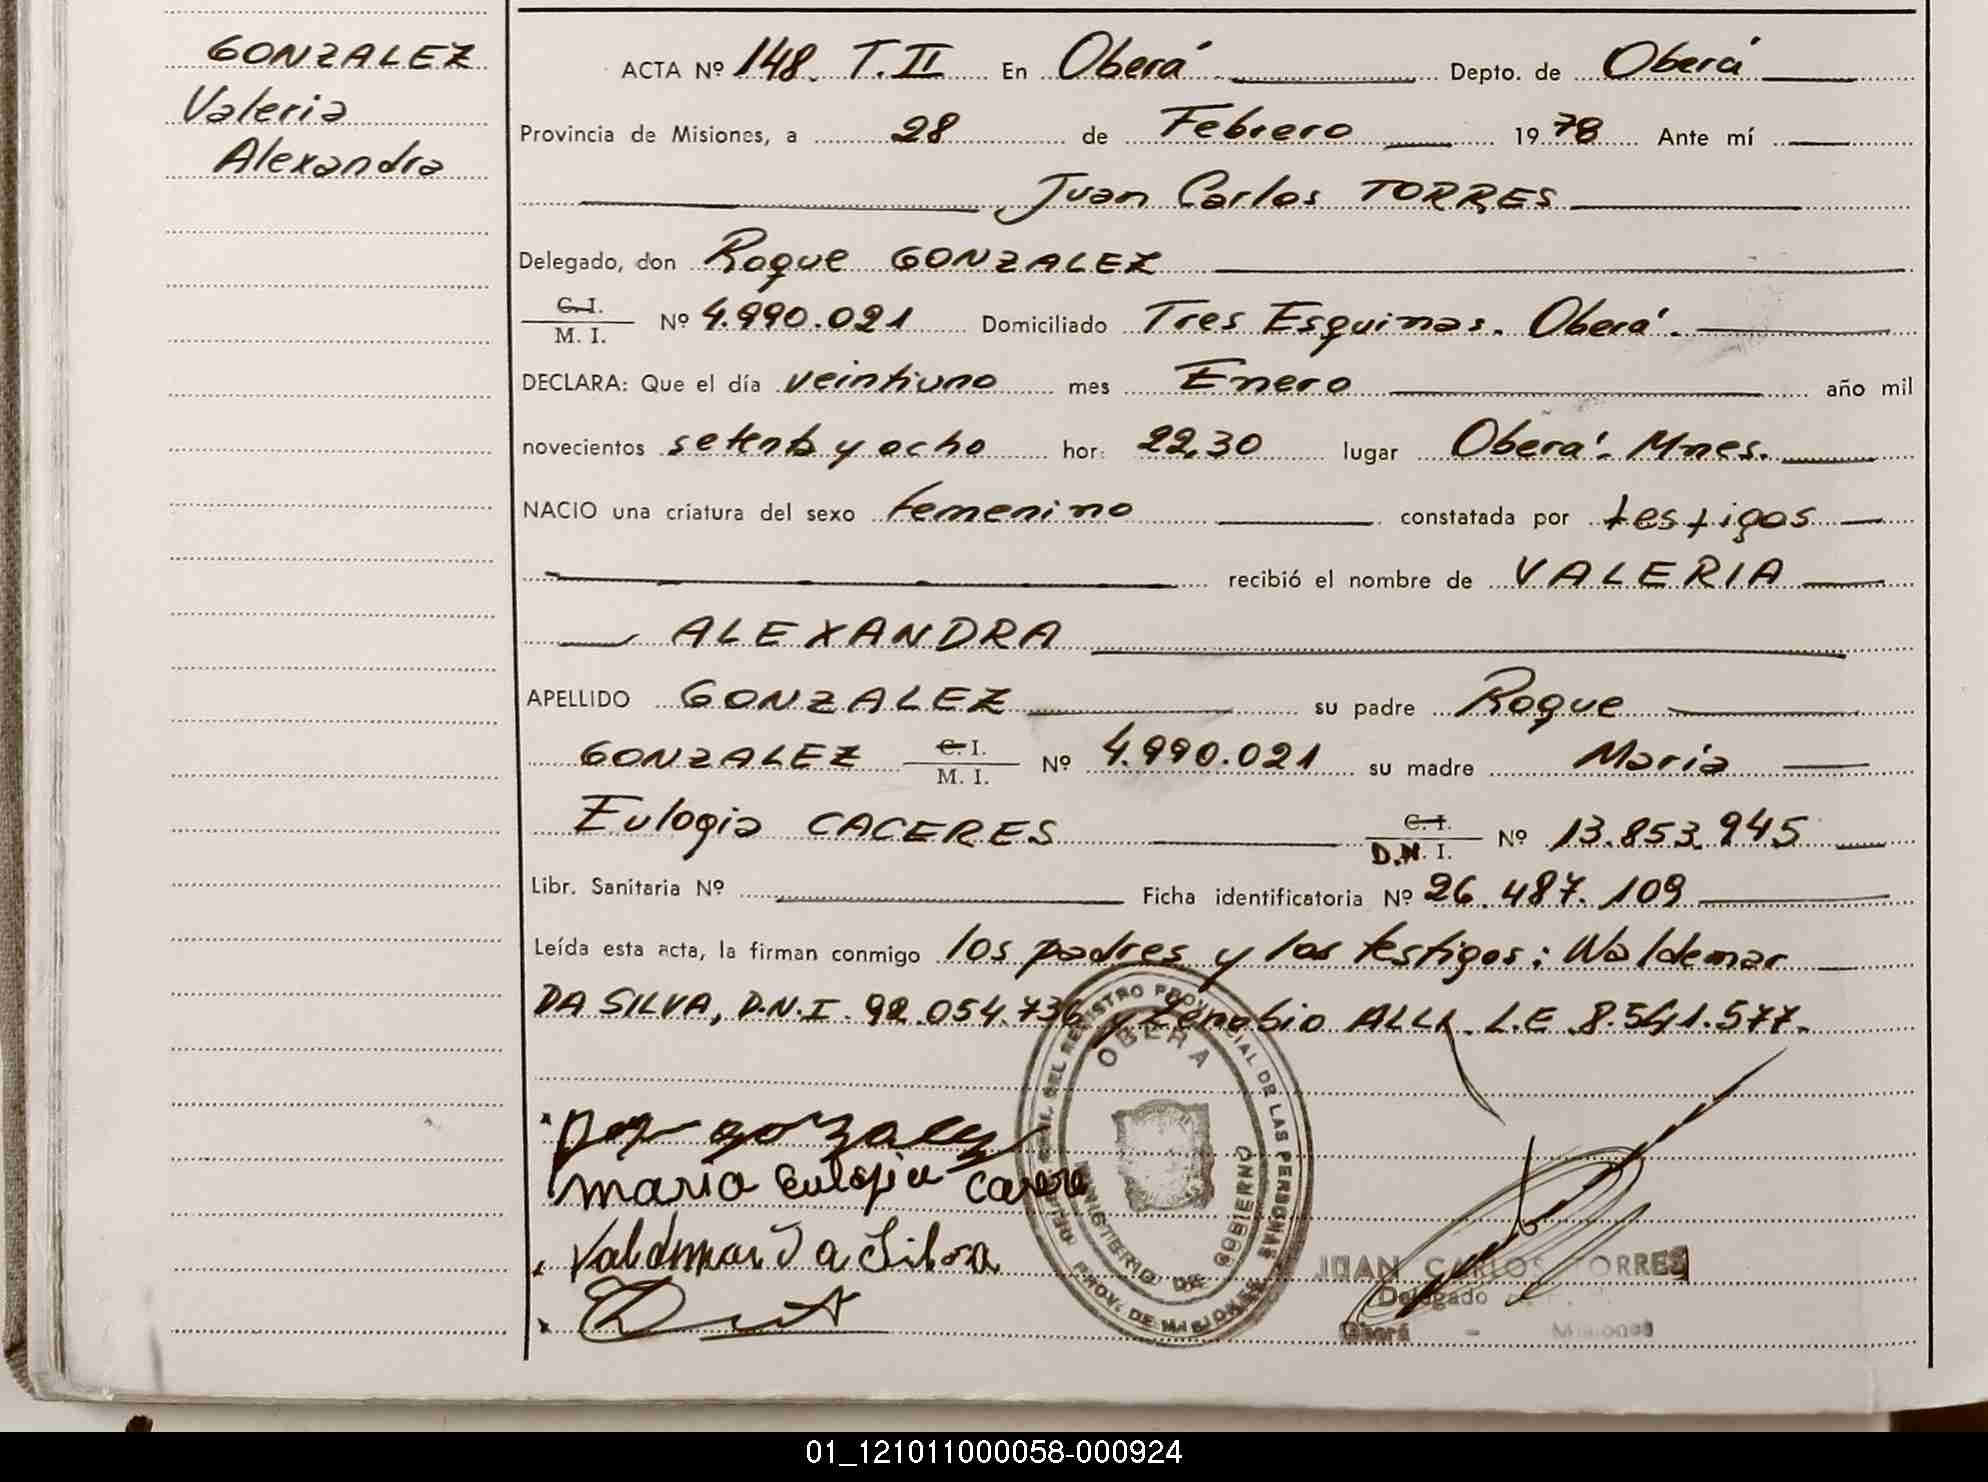 GONZALEZ
Valeria
Alexandra
ACTA Nº 148. T. II En Oberá Depto. de Oberá
Provincia de Misiones, a 28 de Febrero 19 78 Ante mí
Juan Carlos TORRES
Delegado, don Roque GONZALEZ
C. I.
M. I.
Nº 4.990.021 Domiciliado Tres Esquinas. Oberá.
DECLARA: Que el día veintiuno mes Enero año mil
novecientos setenta y ocho hor: 22,30 lugar Oberá. Mnes.
NACIO una criatura del sexo femenino constatada por testigos
recibió el nombre de VALERIA
ALEXANDRA
APELLIDO GONZALEZ su padre Roque
GONZALEZ C. I. M. I. Nº 4.990.021 su madre María
Eulogia CACERES C. I. D.N. I. Nº 13.853.945
Libr. Sanitaria Nº Ficha identificatoria Nº 26.487.109
Leída esta acta, la firman conmigo los padres y los testigos: Waldemar
DA SILVA, D.N.I. 92.054.736 y Zenobio L.E 8.541.577.
DEL REGISTRO PROVINCIAL DE LAS PERSONAS
OBERA
MINISTERIO DE GOBIERNO
PROV. DE MISIONES
gonzalez
maria Eulogia
Valdemar Da Silva
JUAN CARLOS TORRES
Delegado
Oberá - Misiones
01_121011000058-000924